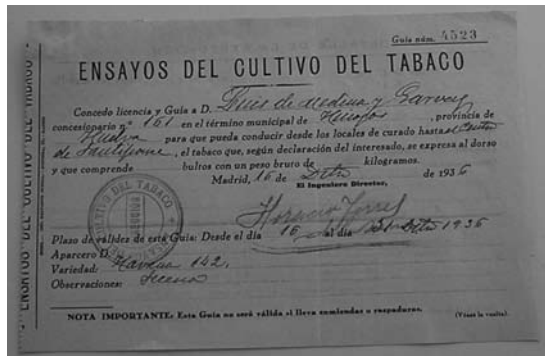 Guía núm. 4523
ENSAYOS DEL CULTIVO DEL TABACO
Concedo licencia y Guía a D. Luis de Medina y Garvey
concesionario nº 161 en el término municipal de Hinojos, provincia de
Huelva para que pueda conducir desde los locales de curado hasta
de Santiponce, el tabaco que, según declaración del interesado, se expresa al dorso
y que comprende bultos con un peso bruto de kilogramos.
Madrid, 16 de de 1936
El Ingeniero Director,
Horacio Torres
Plazo de validez de esta Guía: Desde el día 16 al día 1936
Aparcero D.
Variedad: Havana 142.
Observaciones:
NOTA IMPORTANTE: Esta Guía no será válida si lleva enmiendas o raspaduras.
(Véase la vuelta).
ENSAYOS DEL CULTIVO DEL TABACO